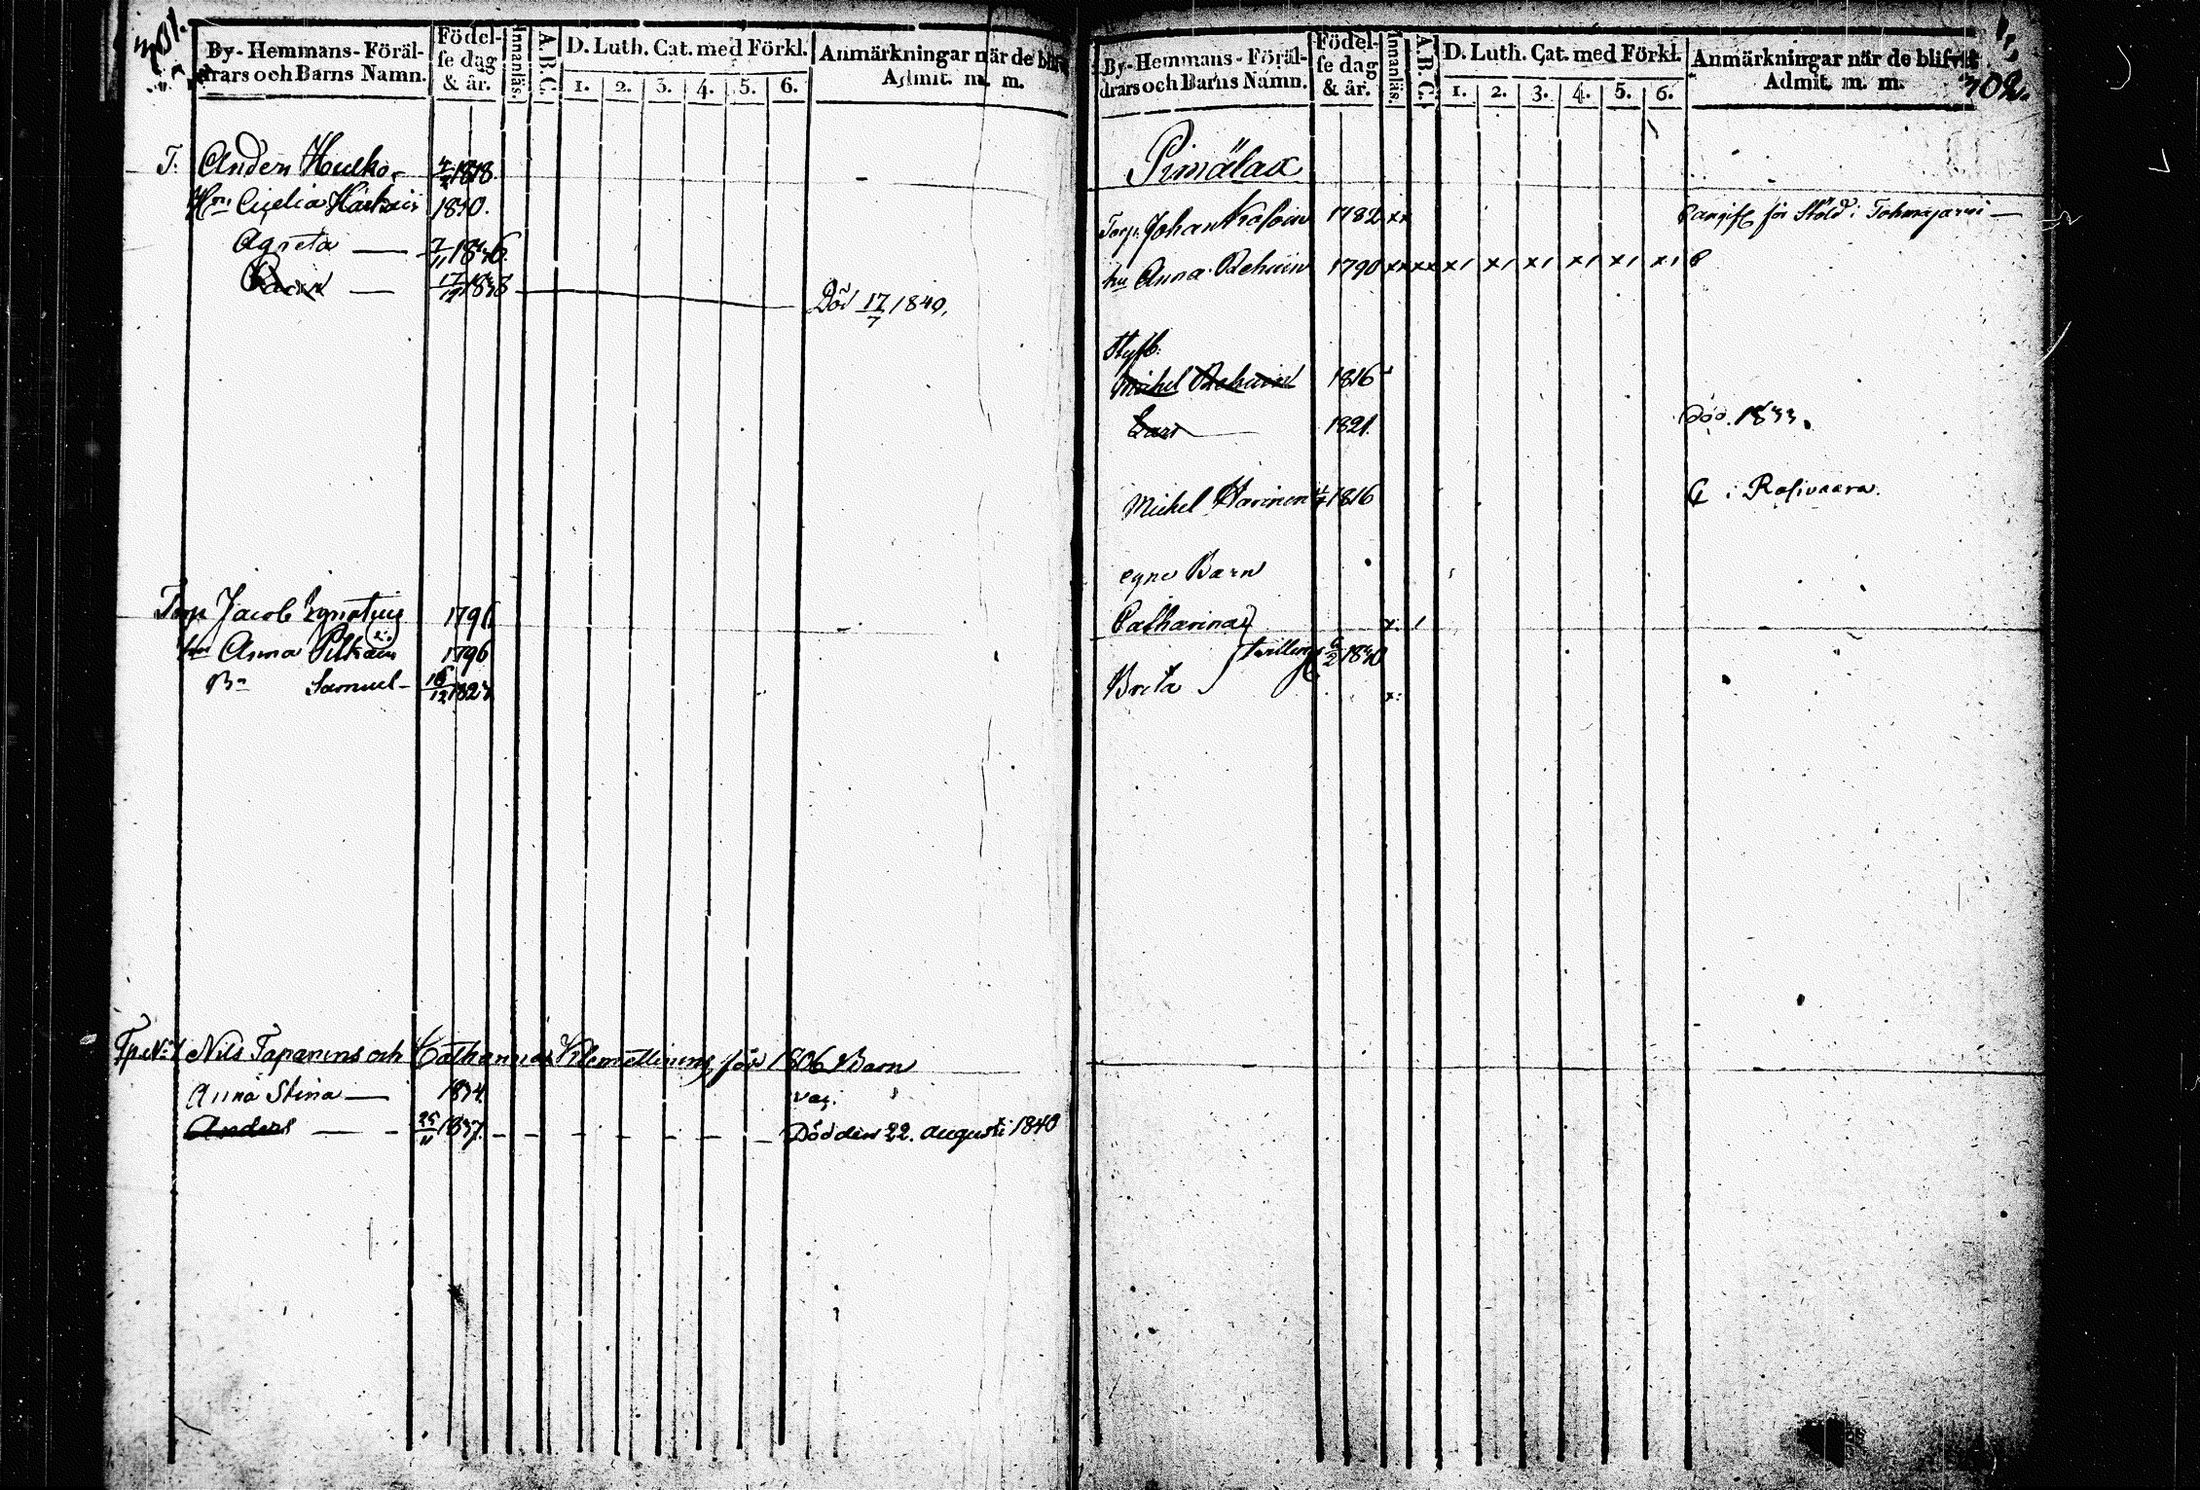 301.
By-Hemmans-Föräl-
drars och Barns Namn.
Födel-
se dag
& år.
Innanläs.
A.B.C.
D. Luth. Cat. med Förkl.
1. 2. 3. 4. 5. 6.
Anmärkningar när de blifvit
Admit. m. m.
T. Anders Hulko
1818.
Hru Cicelia 1810.
Agneta — 7/11 1836
Karin — 17/12 1838 Död 17/7 1840.
Torp. Jacob Ignatius 1796
hu Anna 1796
Bn Samuel — 16/12 1827
Tp. No 1 Nils Tapaninens och Catharina Klemettinens, född 1806 Barn
Anna Stina — 1834. vac.
Anders — 25/11 1837. Död den 22. augusti 1840
302.
By-Hemmans-Föräl-
drars och Barns Namn.
Födel-
se dag
& år.
Innanläs.
A.B.C.
D. Luth. Cat. med Förkl.
1. 2. 3. 4. 5. 6.
Anmärkningar när de blifvit
Admit. m. m.
Pimälax
Torp. Johan 1782 xx för Stöld i Tohmajarvi —
hu Anna 1790 xx xx x1 x1 x1 x1 x1 x1
Styfb:
Michel 1816
Lars 1821. Död. 1833.
Michel Harinen 1816 i Rasivaara.
egne Barn
Catharina x. 1
tvillingr 6/2 1830
Brita x.